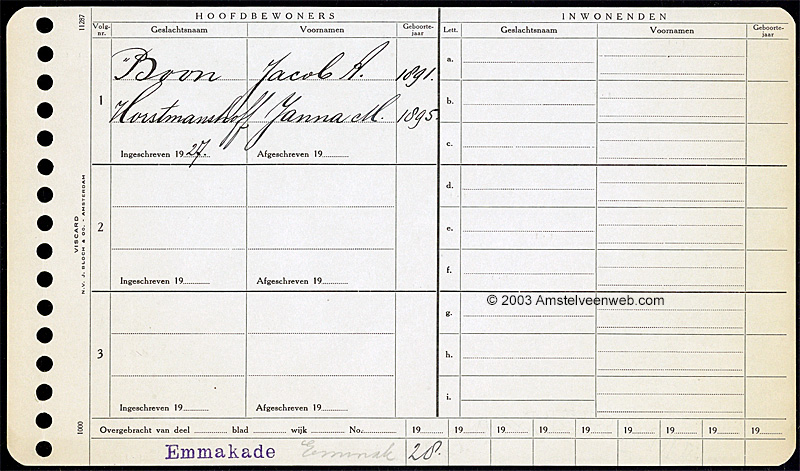 HOOFDBEWONERS INWONENDEN
Volg-nr. Geslachtsnaam Voornamen Geboorte-jaar Lett. Geslachtsnaam Voornamen Geboorte-jaar
11287
1
Boon Jacob A. 1891.
Horstmanshoff Janna M. 1895.
Ingeschreven 1927. Afgeschreven 19
2
Ingeschreven 19 Afgeschreven 19
3
Ingeschreven 19 Afgeschreven 19
a.
b.
c.
d.
e.
f.
g.
h.
i.
© 2003 Amstelveenweb.com
VISCARD
N.V. J. BLOCH & CO. - AMSTERDAM
1000
Overgebracht van deel blad wijk No. 19 19 19 19 19 19 19 19 19
Emmakade Emmak 28.